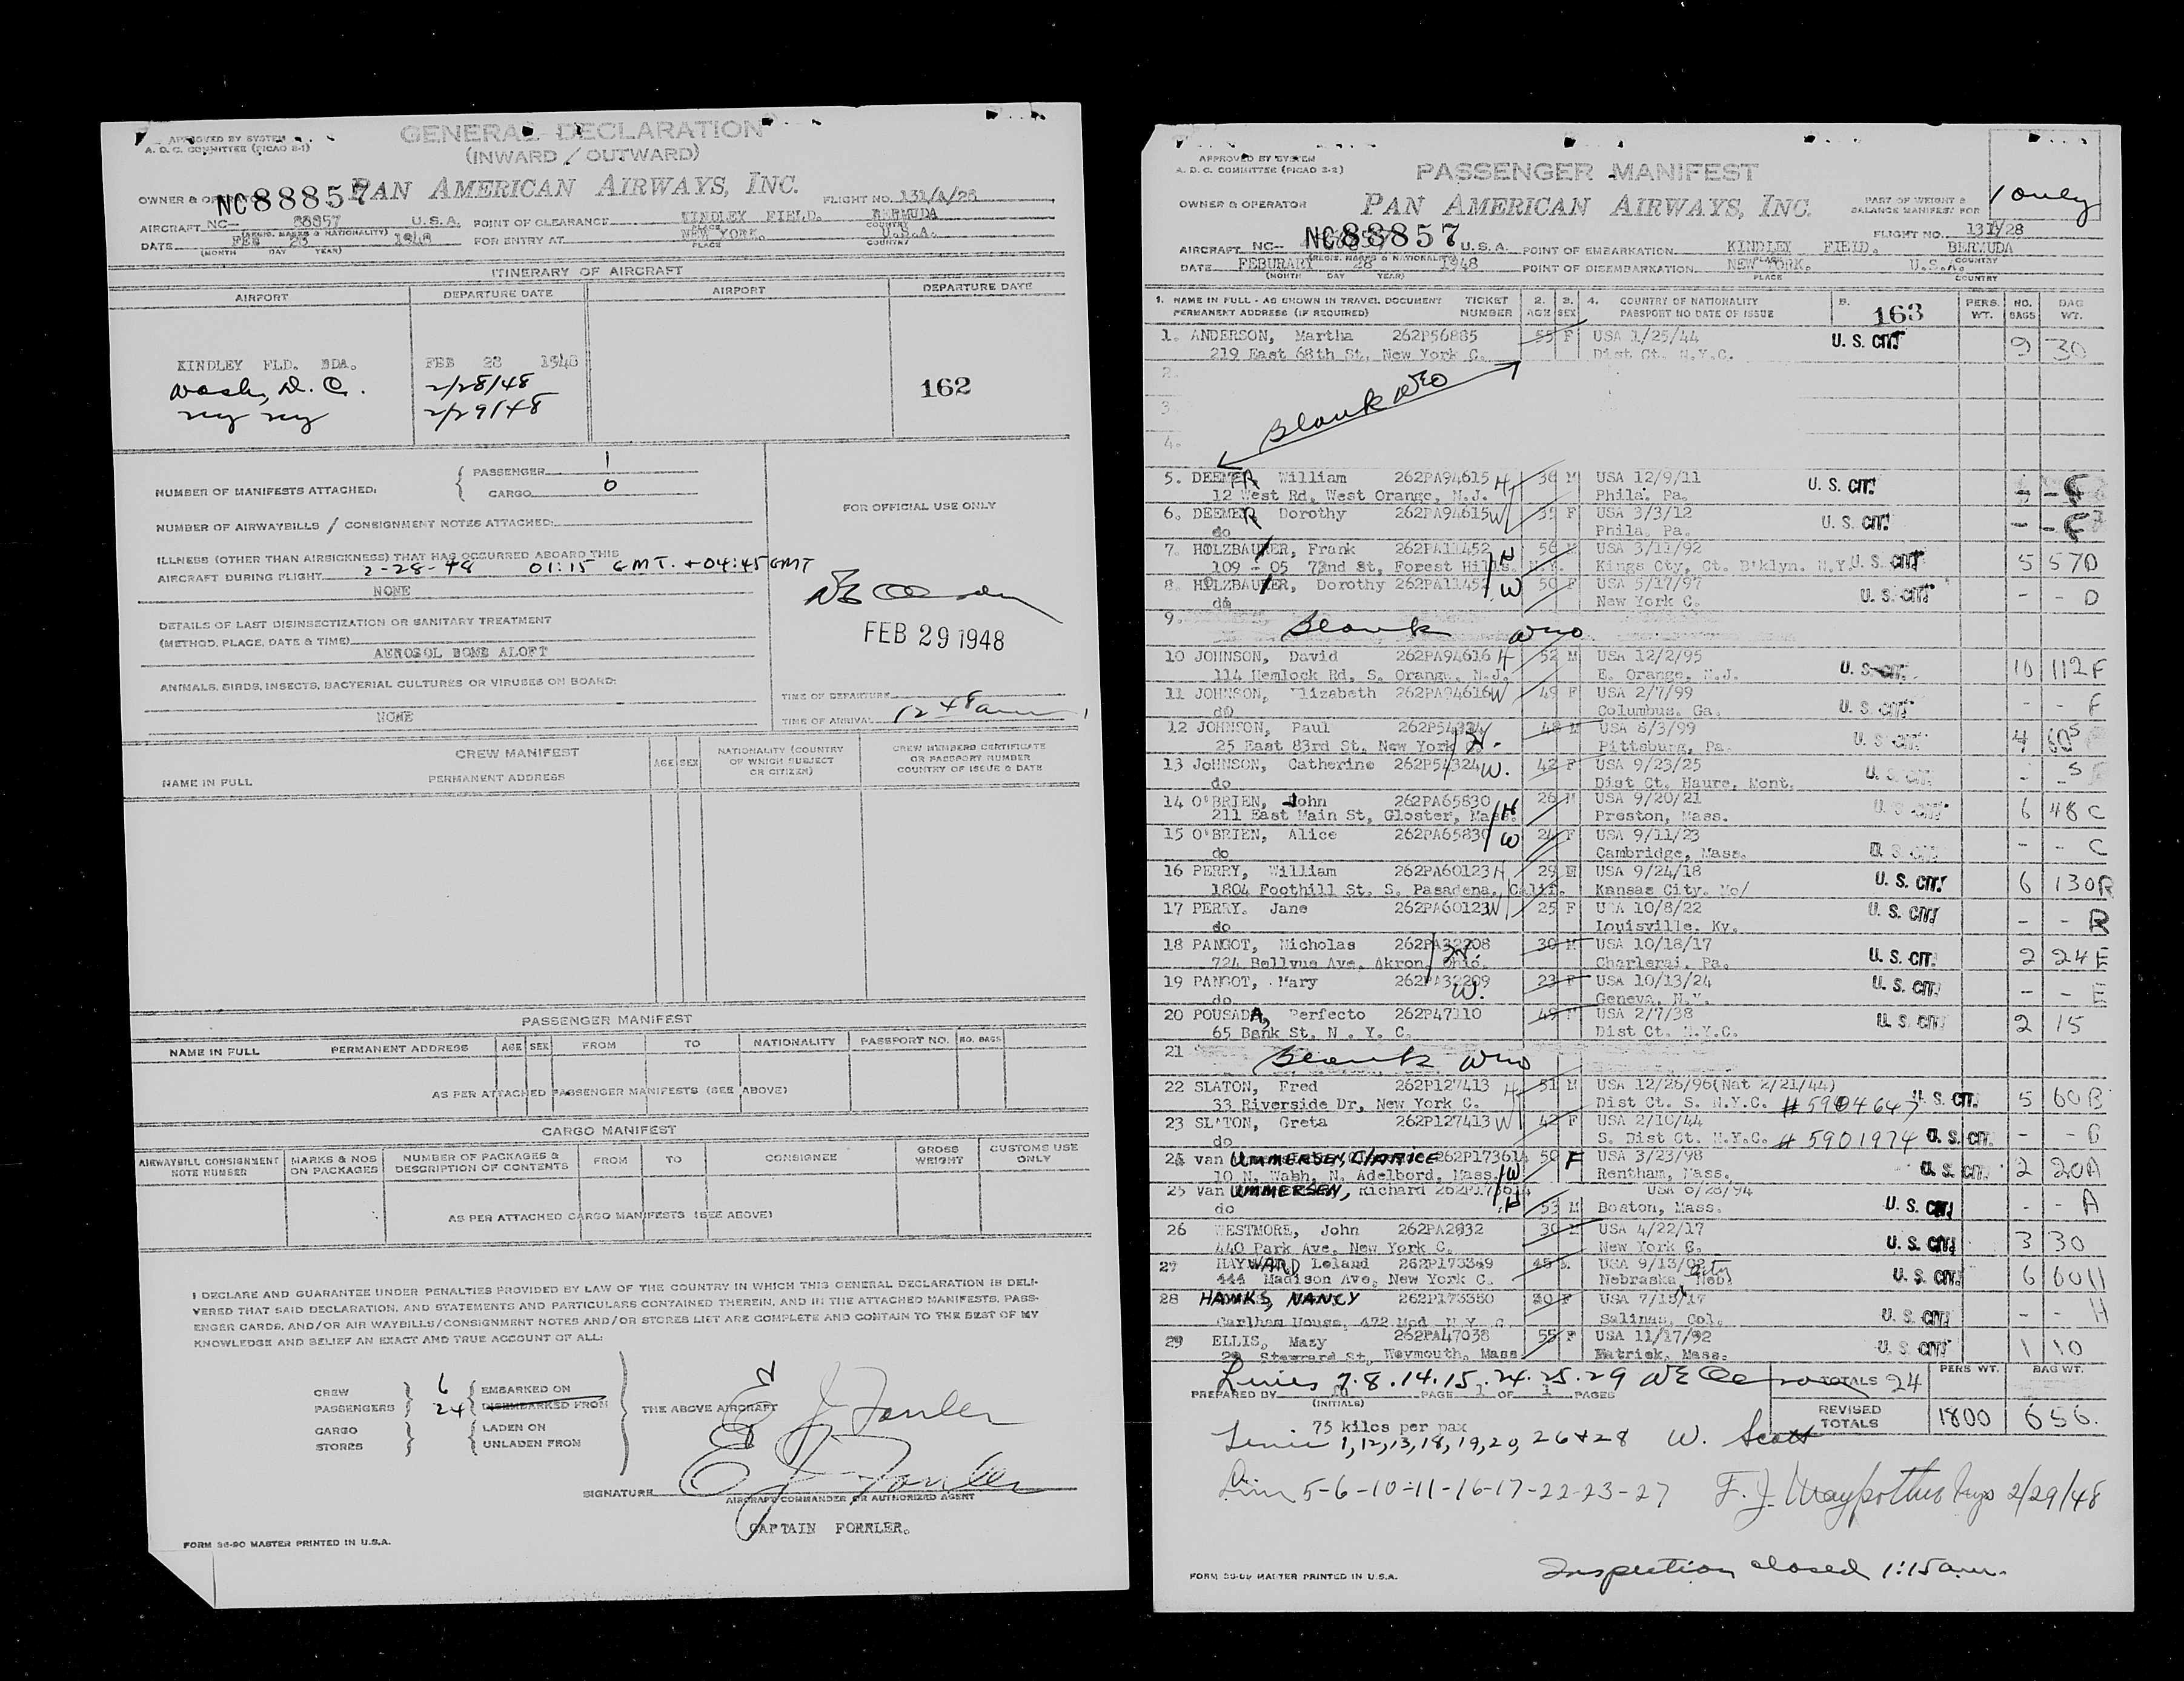 APPROVED BY SYSTEM
A. D. C. COMMITTEE (PICAO 2-1)
GENERAL DECLARATION
(INWARD / OUTWARD)
OWNER & OPERATOR
NC88857
PAN AMERICAN AIRWAYS, INC.
FLIGHT NO. 131/A/28
AIRCRAFT NC- 88857 U.S.A. POINT OF CLEARANCE KINDLEY FIELD. BERMUDA
(REGIS. MARKS & NATIONALITY) PLACE COUNTRY
DATE FEB 28 1948 FOR ENTRY AT NEW YORK. U.S.A.
(MONTH DAY YEAR) PLACE COUNTRY
ITINERARY OF AIRCRAFT
AIRPORT DEPARTURE DATE AIRPORT DEPARTURE DATE
KINDLEY FLD. BDA. FEB 28 1948
Wash, D. C. 2/28/48 162
ny ny 2/29/48
NUMBER OF MANIFESTS ATTACHED: PASSENGER 1
CARGO 0
NUMBER OF AIRWAYBILLS / CONSIGNMENT NOTES ATTACHED:
FOR OFFICIAL USE ONLY
ILLNESS (OTHER THAN AIRSICKNESS) THAT HAS OCCURRED ABOARD THIS
AIRCRAFT DURING FLIGHT 2-28-48 01:15 GMT. + 04:45 GMT
NONE
DETAILS OF LAST DISINSECTIZATION OR SANITARY TREATMENT
(METHOD, PLACE, DATE & TIME)
AEROSOL BOMB ALOFT
FEB 29 1948
ANIMALS, BIRDS, INSECTS, BACTERIAL CULTURES OR VIRUSES ON BOARD:
NONE
TIME OF DEPARTURE
TIME OF ARRIVAL 12 48 am
CREW MANIFEST
NAME IN FULL PERMANENT ADDRESS AGE SEX NATIONALITY (COUNTRY OF WHICH SUBJECT OR CITIZEN) CREW MEMBERS CERTIFICATE OR PASSPORT NUMBER COUNTRY OF ISSUE & DATE
PASSENGER MANIFEST
NAME IN FULL PERMANENT ADDRESS AGE SEX FROM TO NATIONALITY PASSPORT NO. NO. BAGS
AS PER ATTACHED PASSENGER MANIFESTS (SEE ABOVE)
CARGO MANIFEST
AIRWAYBILL CONSIGNMENT NOTE NUMBER MARKS & NOS ON PACKAGES NUMBER OF PACKAGES & DESCRIPTION OF CONTENTS FROM TO CONSIGNEE GROSS WEIGHT CUSTOMS USE ONLY
AS PER ATTACHED CARGO MANIFESTS (SEE ABOVE)
I DECLARE AND GUARANTEE UNDER PENALTIES PROVIDED BY LAW OF THE COUNTRY IN WHICH THIS GENERAL DECLARATION IS DELI-
VERED THAT SAID DECLARATION, AND STATEMENTS AND PARTICULARS CONTAINED THEREIN, AND IN THE ATTACHED MANIFESTS, PASS-
ENGER CARDS, AND/OR AIR WAYBILLS/CONSIGNMENT NOTES AND/OR STORES LIST ARE COMPLETE AND CONTAIN TO THE BEST OF MY
KNOWLEDGE AND BELIEF AN EXACT AND TRUE ACCOUNT OF ALL:
CREW 6 EMBARKED ON
PASSENGERS 24 DISEMBARKED FROM THE ABOVE AIRCRAFT
CARGO LADEN ON
STORES UNLADEN FROM
SIGNATURE
AIRCRAFT COMMANDER OR AUTHORIZED AGENT
CAPTAIN FORRLER.
FORM 36-90 MASTER PRINTED IN U.S.A.
APPROVED BY SYSTEM
A. D. C. COMMITTEE (PICAO 2-2)
PASSENGER MANIFEST
1 only
OWNER & OPERATOR PAN AMERICAN AIRWAYS, INC.
PART OF WEIGHT & BALANCE MANIFEST FOR
FLIGHT NO. 131/28
AIRCRAFT NC- NC88857 U.S.A. POINT OF EMBARKATION KINDLEY FIELD. BERMUDA
(REGIS. MARKS & NATIONALITY) PLACE COUNTRY
DATE FEBURARY 28 1948 POINT OF DISEMBARKATION NEW YORK. U.S.A.
(MONTH DAY YEAR) PLACE COUNTRY
1. NAME IN FULL - AS SHOWN IN TRAVEL DOCUMENT TICKET 2. 3. 4. COUNTRY OF NATIONALITY 5. 163 PERS. NO. BAG
PERMANENT ADDRESS (IF REQUIRED) NUMBER AGE SEX PASSPORT NO DATE OF ISSUE WT. BAGS WT.
1. ANDERSON, Martha 262P56885 55 F USA 1/25/44 U. S. CIT. 9 30
219 East 68th St. New York C. Dist Ct. N.Y.C.
2.
3. Blank WEO
4.
5. DEEMER William 262PA94615 H 36 M USA 12/9/11 U. S. CIT. - - F
12 West Rd. West Orange, N.J. Phila. Pa.
6. DEEMER Dorothy 262PA94615 W 35 F USA 3/3/12 U. S. CIT. - - F
do Phila. Pa.
7. HOLZBAUER, Frank 262PA11452 H 56 M USA 3/11/92
109 - 05 72nd St, Forest Hills. N.Y. Kings Cty. Ct. Bklyn. N.Y. U. S. CIT. 5 57D
8. HOLZBAUER, Dorothy 262PA11452 W 50 F USA 5/17/97 U. S. CIT. - - D
do New York C.
9. Blank
10 JOHNSON, David 262PA94616 H 52 M USA 12/2/95 U. S. CIT. 10 112F
114 Hemlock Rd, S. Orange. N.J. E. Orange, N.J.
11 JOHNSON, Elizabeth 262PA94616 W 49 F USA 2/7/99 U. S. CIT. - - F
do Columbus. Ga.
12 JOHNSON, Paul 262P54324 48 M USA 8/3/99 U. S. CIT. 4 60S
25 East 83rd St, New York C. H. Pittsburg, Pa.
13 JoHNSON, Catherine 262P54324 W. 42 F USA 9/23/25 U. S. CIT. - - S
do Dist Ct. Haure, Mont.
14 O'BRIEN, John 262PA65830 H 26 M USA 9/20/21 U. S. CIT. 6 48 C
211 East Main St, Gloster, Mass. Preston, Mass.
15 O'BRIEN, Alice 262PA65830 W 24 F USA 9/11/23 U. S. CIT. - - C
do Cambridge, Mass.
16 PERRY, William 262PA60123 H 29 M USA 9/24/18 U. S. CIT. 6 130R
1804 Foothill St. S. Pasadena. Calif. Kansas City. Mo/
17 PERRY. Jane 262PA60123 W 25 F USA 10/8/22 U. S. CIT. - - R
do Louisville. Ky.
18 PANGOT, Nicholas 262PA32208 30 M USA 10/18/17 U. S. CIT. 2 24E
724 Bellvue Ave. Akron, Ohio. H. Charleroi, Pa.
19 PANGOT, Mary 262PA32209 W. 23 F USA 10/13/24 U. S. CIT. - - E
do Geneva, N.Y.
20 POUSADA, Perfecto 262P47110 49 M USA 2/7/38 U. S. CIT. 2 15
65 Bank St. N . Y. C. Dist Ct. N.Y.C.
21 Blank
22 SLATON, Fred 262P127413 H 51 M USA 12/26/96(Nat 2/21/44) U. S. CIT. 5 60B
33 Riverside Dr, New York C. Dist Ct. S. N.Y.C. # 5904647
23 SLATON, Greta 262P127413 W 42 F USA 2/10/44 U. S. CIT. - - B
do S. Dist Ct. N.Y.C. # 5901974
24 van UMMERSEN, CLARICE 262P173614 W 50 F USA 3/23/98 U. S. CIT. 2 20A
10 N. Wabh, N. Adelbord, Mass. Rentham, Mass.
25 van UMMERSEN, Richard 262P173614 H USA 6/28/94
do 53 M Boston, Mass. U. S. CIT. - - A
26 WESTMORE, John 262PA2032 30 M USA 4/22/17 U. S. CIT. 3 30
440 Park Ave, New York C. New York C.
27 HAYWARD Leland 262P173349 45 M USA 9/13/02 U. S. CIT. 6 60H
444 Madison Ave, New York C. Nebraska City Neb.
28 HAWKS, NANCY 262P173350 30 F USA 7/15/17 U. S. CIT. - - H
Carlham House, 472 Mad N.Y. C. Salinas, Col.
29 ELLIS, Mazy 262PA47038 55 F USA 11/17/92 U. S. CIT. 1 10
Steward St, Weymouth, Mass Natrick, Mass.
Lines 7.8.14.15.24.25.29
PREPARED BY (INITIALS) PAGE 1 OF 1 PAGES TOTALS 24 PERS WT. BAG WT.
REVISED TOTALS 1800 656.
75 kilos per pax
Line 1,12,13,18,19,20, 26 & 28 W. Scott
Line 5-6-10-11-16-17-22-23-27 2/29/48
Inspection closed 1:15 a.m.
FORM PRINTED IN U.S.A.